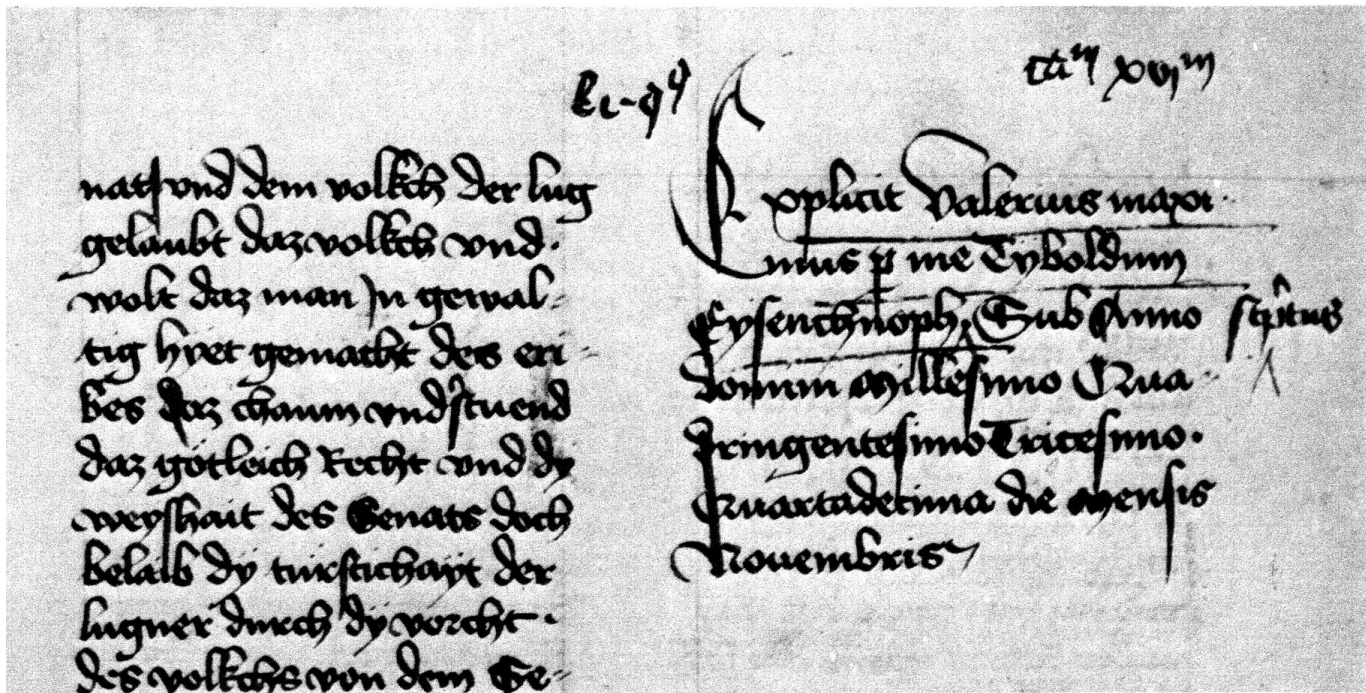 nats vnd dem volkch der lug
gelaubt daz volkch vnd·
wolt daz man jn gewal-
tig hyet gemacht des eri-
bes daz chaum vndstuend
daz gotleich Recht vnd dy
weyshait des Senats doch
belaib dy türstichayt der
lugner durch dy vorcht·
des volkchs von dem Ge-
xvi
Explicit Valerius maxi-
mus p me Tyboldum
Eysenchnoph, Sub Anno
domini Millesimo Qua-
dringentesimo Tricesimo·
Quartadecima die Mensis
Nouembris